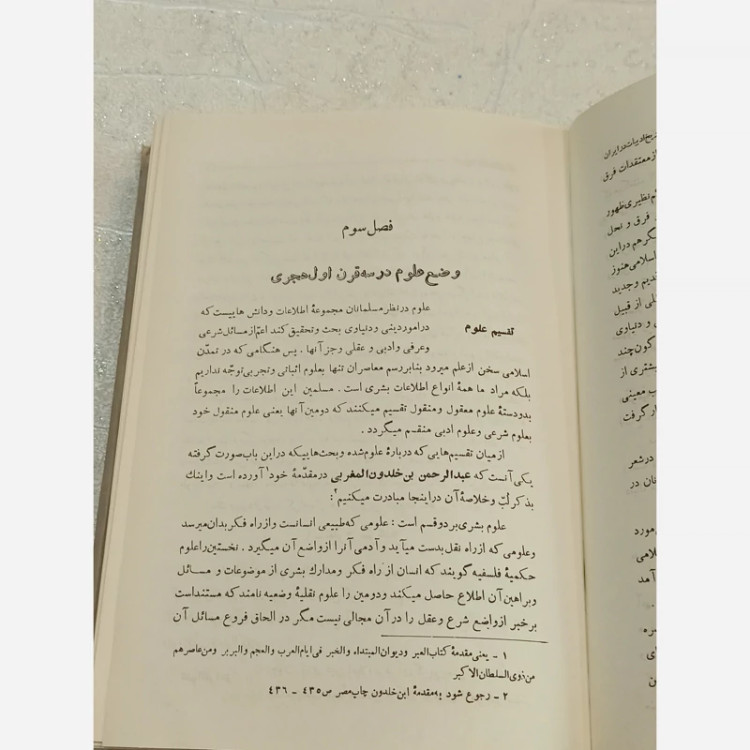 فصل سوم
وضع علوم در سه قرن اول هجری
تقسیم علوم
علوم در نظر مسلمانان مجموعهٔ اطلاعات و دانش هاییست که
در امور دینی و دنیاوی بحث و تحقیق کند اعم از مسائل شرعی
و عرفی و ادبی و عقلی و جز آنها . پس هنگامی که در تمدّن
اسلامی سخن از علم میرود بنابر رسم معاصران تنها بعلوم اثباتی و تجربی توجّه نداریم
بلکه مراد ما همهٔ انواع اطلاعات بشری است . مسلمین این اطلاعات را مجموعاً
بدو دستهٔ علوم معقول و منقول تقسیم میکنند که دومین آنها یعنی علوم منقول خود
بعلوم شرعی و علوم ادبی منقسم میگردد .
از میان تقسیم‌هایی که دربارهٔ علوم شده و بحث‌هاییکه در این باب صورت گرفته
یکی آنست که عبدالرحمن بن خلدون المغربی در مقدّمهٔ خود۱ آورده است و اینك
بذکر لُبّ و خلاصهٔ آن در اینجا مبادرت میکنیم۲:
علوم بشری بر دو قسم است : علومی که طبیعی انسانست و از راه فکر بدان میرسد
و علومی که از راه نقل بدست میآید و آدمی آنرا از واضع آن میگیرد . نخستین را علوم
حکمیهٔ فلسفیه گویند که انسان از راه فکر و مدارك بشری از موضوعات و مسائل
و براهین آن اطلاع حاصل میکند و دومین را علوم نقلیهٔ وضعیه نامند که مستند است
بر خبر از واضع شرع و عقل را در آن مجالی نیست مگر در الحاق فروع مسائل آن
۱ - یعنی مقدمهٔ کتاب العبر و دیوان المبتداء والخبر فی ایام العرب والعجم والبربر ومن عاصرهم
من ذوی السلطان الاکبر
۲ - رجوع شود به مقدمهٔ ابن خلدون چاپ مصر ص ٤٣٥ - ٤٣٦
تاریخ ادبیات در ایران
از معتقدات فرق
نظیری ظهور
فرق و نحل
گر هم در این
اسلامی هنوز
قدیم و جدید
از قبیل
و دنیاوی
گون چند
بیشتری از
معینی
گرفت
در شعر
در
مورد
آمد